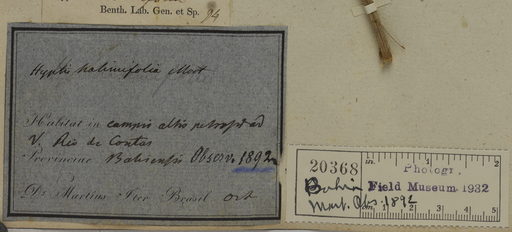 Benth. Lab. Gen. et Sp. 94
Hyptis halimifolia Mart
Habitat in campis altis petros. ad
V. Rio de Contas
Provinciae Bahiensis Observ. 1892
Dr Martius Iter Brasil Oct
20368
in. 1 2
Photogr.
Bahia Field Museum 1932
Mart. Obs. 1892
cm. 1 2 3 4 5